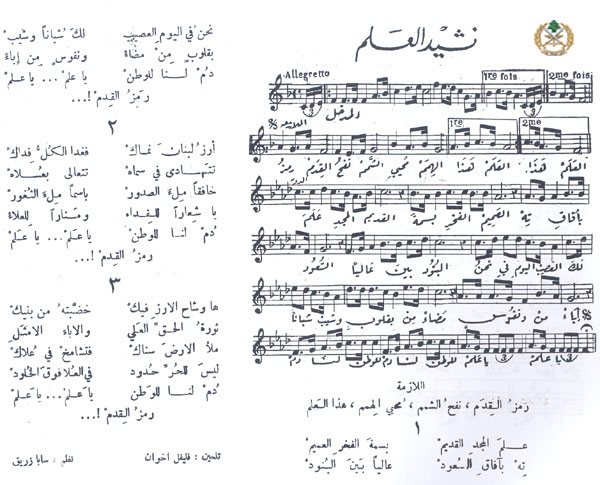 نشيد العلم
Allegretto 1re fois 2me fois
المدخل
اللازمة 1re 2me
رمز القدم نفح الشمم محيي الهمم هذا العلم هذا العلم
علم المجد القديم بسمة الفخر العميم ته بآفاق
السعود عالياً بين البنود نحن في اليوم العصيب لك
شباناً وشيب بقلوب من مضاء ونفوس من إباء
دم لنا للوطن دم لنا للوطن يا علم يا علم
اللازمة
رمزُ القِدَم، نفحُ الشمم، مُحيي الهمم، هذا العلم
١
علمَ المجدِ القديمْ بسمةَ الفخرِ العميمْ
تِهْ بآفاقِ السعودْ عالياً بَينَ البنُودْ
نحنُ في اليومِ العصيبْ لكَ شُبّاناً وشيبْ
بقلوبٍ مِنْ مضاءْ ونفوسٍ مِن إباءْ
دُمْ لنا للوطنْ يا علمْ ... يا علمْ
رمزُ القِدمْ !...
٢
أرزُ لبنانَ نماكْ فغدا الكلُّ فِداكْ
تتهادى في سماهْ تتعالى بعُلاهْ
خافقاً مِلءَ الصدورْ باسماً مِلءَ الثغورْ
يا شِعاراً للفِداءْ ومَناراً للعلاءْ
دُمْ لنا للوطنْ يا علمْ... يا علمْ
رمزُ القِدمْ ...!
٣
ها وشاح الارزِ فيكْ خضّبتهُ من بنيكْ
ثورةُ الحقِّ العلي والاباءِ الامثلِ
ملأَ الارضَ سناكْ فتشامخْ في عُلاكْ
ليسَ للحُرِّ حدود في العُلا فوقَ الخلودْ
دُمْ لنا للوطنْ يا علمْ... يا علمْ
رمزُ القِدمْ !...
تلحين : فليفل اخوان نظم : سابا زريق